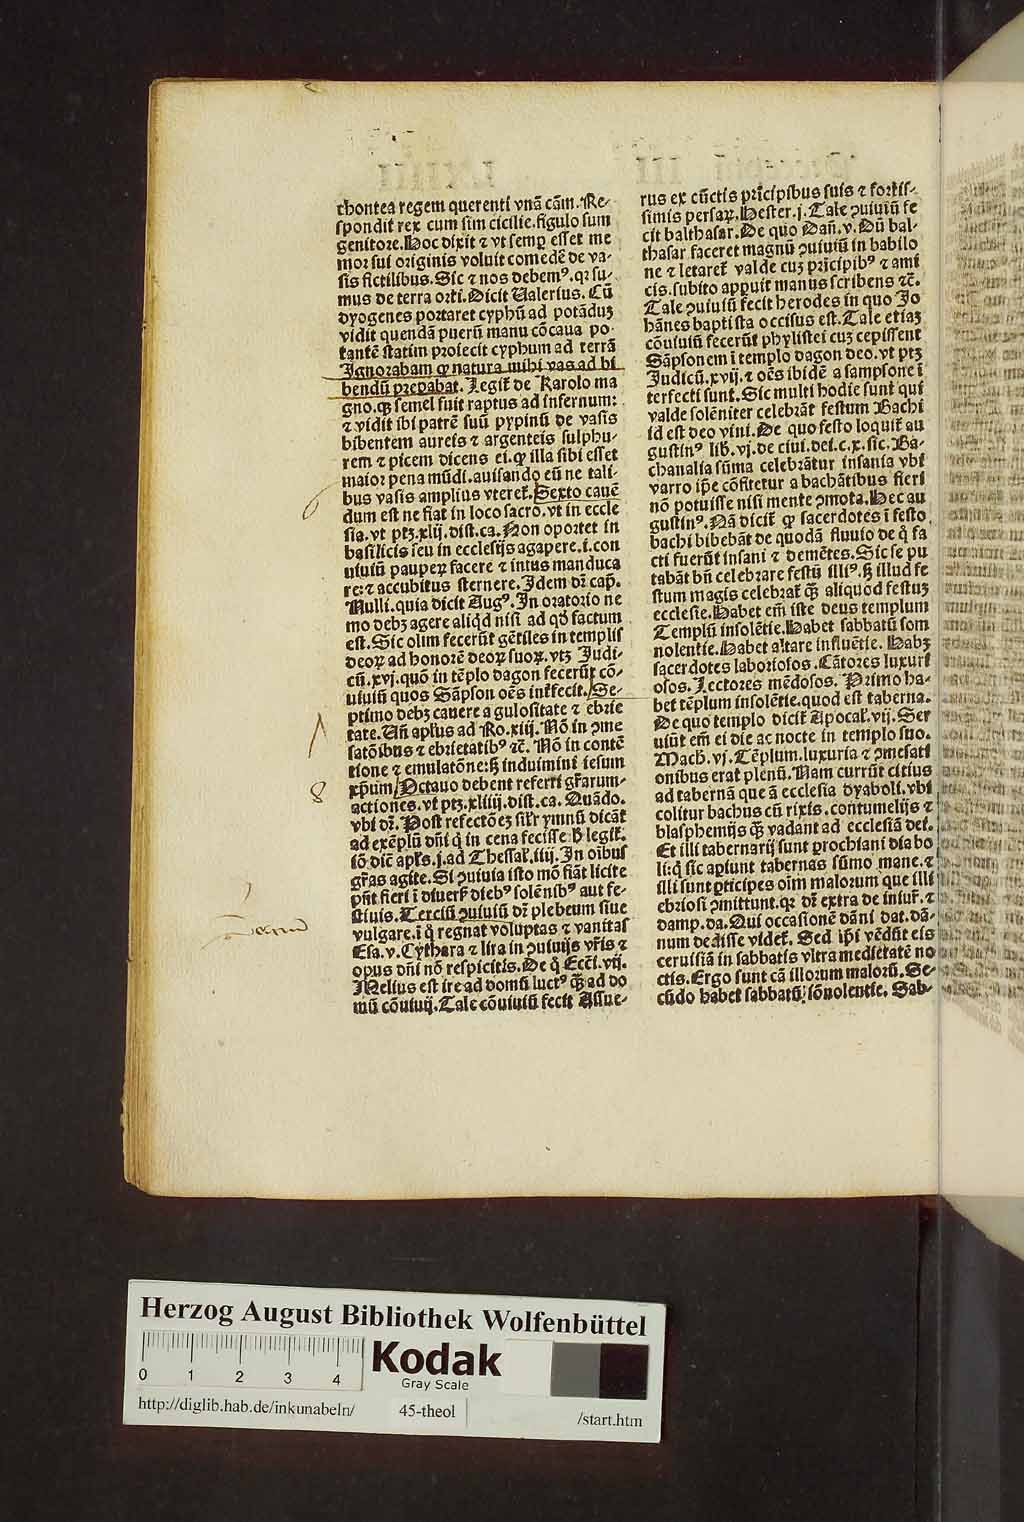 thontea regem querenti vnā cām. Re-
spondit rex cum sim cicilie. figulo sum
genitore. Hoc dixit ⁊ vt semꝑ esset me
mor sui originis voluit comedē de va-
sis fictilibus. Sic ⁊ nos debemꝰ. qꝛ su-
mus de terra orti. Dicit Ualerius. Cū
dyogenes portaret cyphū ad potāduꝫ
vidit quendā puerū manu cōcaua po-
tantē statim proiecit cyphum ad terrā
Ignorabam ꝙ natura mihi vas ad bi
bendū preparabat. Legit̄ de Karolo ma
gno. qꝫ semel fuit raptus ad infernum:
⁊ vidit ibi patrē suū pypinū de vasis
bibentem aureis ⁊ argenteis sulphu-
rem ⁊ picem dicens ei. ꝙ illa sibi esset
maior pena mūdi. auisando eū ne tali-
bus vasis amplius vteret̄. Sexto cauē
dum est ne fiat in loco sacro. vt in eccle
sia. vt ptꝫ. xlij. dist. ca. Non oportet in
basilicis seu in ecclesijs agapere. i. con
uiuiū pauperꝝ facere ⁊ intus manduca
re: ⁊ accubitus sternere. Idem dꝛ̄ cap̄.
Nulli. quia dicit Augꝰ. In oratorio ne
mo debꝫ agere aliqͥd nisi ad qd̓ factum
est. Sic olim fecerūt gētiles in templis
deoꝝ ad honorē deoꝝ suoꝝ. vtꝫ Judi-
cū. xvj. quō in tēplo dagon fecerūt cō-
uiuiū quos Sāpson oēs int̓fecit. Se-
ptimo debꝫ cauere a gulositate ⁊ ebrie
tate. Uñ apl̓us ad Ro. xiij. Nō in ꝯme
satōibus ⁊ ebrietatibꝰ ⁊c̄. Nō in contē
tione ⁊ emulatōne: ꝫ induimini iesum
xp̄um. Octauo debent referri gr̄arum-
actiones. vt ptꝫ. xliiij. dist. ca. Quādo.
vbi dꝛ̄. Post refectōeꝫ sil̓r ymnū dicāt
ad exēplū dn̄i qͥ in cena fecisse h̓ legit̄.
iō dic̄ apl̓s. j. ad Thessal̓. iiij. In oībus
gr̄as agite. Si ꝯuiuia isto mō fiāt licite
pn̄t fieri ī diuers̓ diebꝰ solēnibꝰ aut fe-
stiuis. Terciū ꝯuiuiū dꝛ̄ plebeum siue
vulgare. ī qͦ regnat voluptas ⁊ vanitas
Esa. v. Cythara ⁊ lira in ꝯuiuijs vr̄is ⁊
opus dn̄i nō respicitis. De qͦ Ecc̄i. vij.
Melius est ire ad domū luctꝰ qꝫ̄ ad do
mū cōuiuij. Tale cōuiuiū fecit Assue-
rus ex cūctis prīcipibus suis ⁊ fortis-
simis persaꝝ. Hester. j. Tale ꝯuiuiū fe
cit balthasar. De quo Dañ. v. Dū bal-
thasar faceret magnū ꝯuiuiū in babilo
ne ⁊ letaret̄ valde cuꝫ prīcipibꝰ ⁊ ami
cis. subito apꝑuit manus scribens ⁊c̄.
Tale ꝯuiuiū fecit herodes in quo Jo
hānes baptista occisus est. Tale etiaꝫ
cōuiuiū fecerūt phylistei cuꝫ cepissent
Sāpsonem ī templo dagon deo. vt ptꝫ
Judicū. xvij. ⁊ oēs ibidē a sampsone ī
terfecti sunt. Sic multi hodie sunt qui
valde solēniter celebrāt festum Bachi
id est deo vini. De quo festo loquit̄ au
gustinꝰ lib. vj. de ciui. dei. c. x. sic. Ba-
chanalia sūma celebrātur insania vbi
varro ip̄e cōfitetur a bachātibus fieri
nō potuisse nisi mente ꝯmota. Hec au
gustinꝰ. Nā dicit̄ ꝙ sacerdotes ī festo
bachi bibebāt de quodā fluuio de qͦ fa
cti fuerūt insani ⁊ demētes. Sic se pu
tabāt bn̄ celebrare festū illiꝰ. ꝫ illud fe
stum magis celebrat̄ qꝫ̄ aliquod festuꝫ
ecclesie. Habet em̄ iste deus templum
Templū insolētie. Habet sabbatū som
nolentie. Habet altare influētie. Habꝫ
sacerdotes laboriosos. Cātores luxuri
osos. Lectores mēdosos. Primo ha-
bet tēplum insolētie. quod est taberna.
De quo templo dicit̄ Apocal̓. vij. Ser
uiūt em̄ ei die ac nocte in templo suo.
Mach. vj. Tēplum. luxuria ⁊ ꝯmesati
onibus erat plenū. Nam currūt citius
ad tabernā que ā ecclesia dyaboli. vbi
colitur bachus cū rixis. contumelijs ⁊
blasphemijs qꝫ̄ vadant ad ecclesiā dei.
Et illi tabernarij sunt ꝑrochiani diabo
li: qͥ sic aꝑiunt tabernas sūmo mane. ⁊
illi sunt ꝑticipes oīm malorum que illi
ebriosi ꝯmittunt. qꝛ dꝛ̄ extra de iniur̄. ⁊
damp. da. Qui occasionē dāni dat. dā-
num dedisse videt̄. Sed ip̄i vēdūt eis
ceruisiā in sabbatis vltra medietatē no
ctis. Ergo sunt cā illorum malorū. Se-
cūdo habet sabbatū: sōnolentie. Sab-
6
7
8
Herzog August Bibliothek Wolfenbüttel
0 1 2 3 4
Kodak
Gray Scale
http://diglib.hab.de/inkunabeln/ 45-theol /start.htm